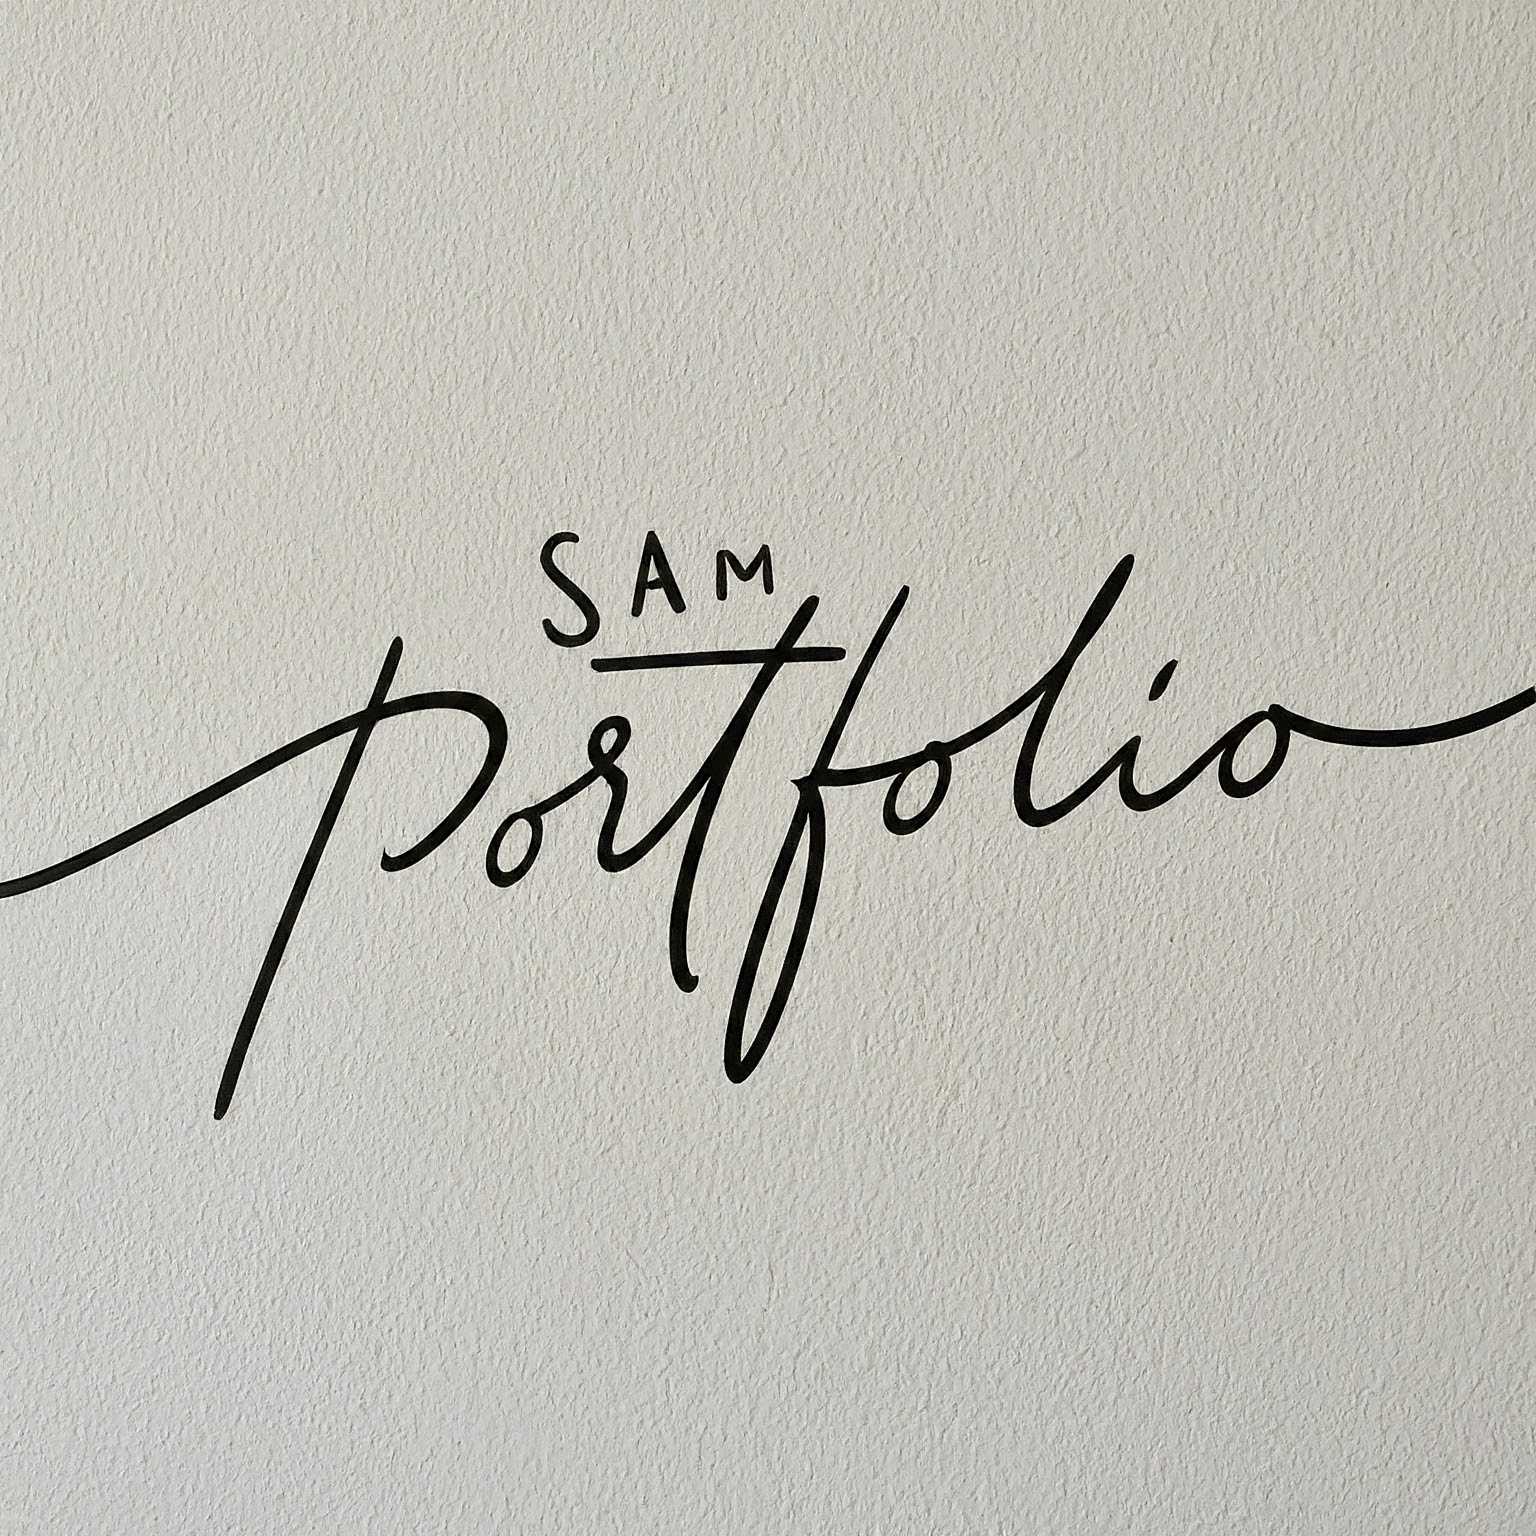 SAM
Portfolio